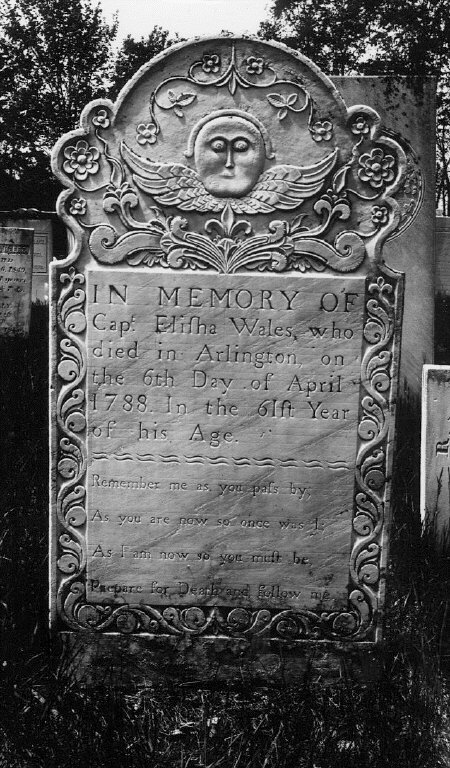 IN MEMORY OF
Capt. Eliſha Wales, who
died in Arlington, on
the 6th Day of April
1788. In the 61ſt Year
of his Age.
Remember me as you paſs by,
As you are now so once was I,
As I am now so you muſt be,
Prepare for Death and follow me.